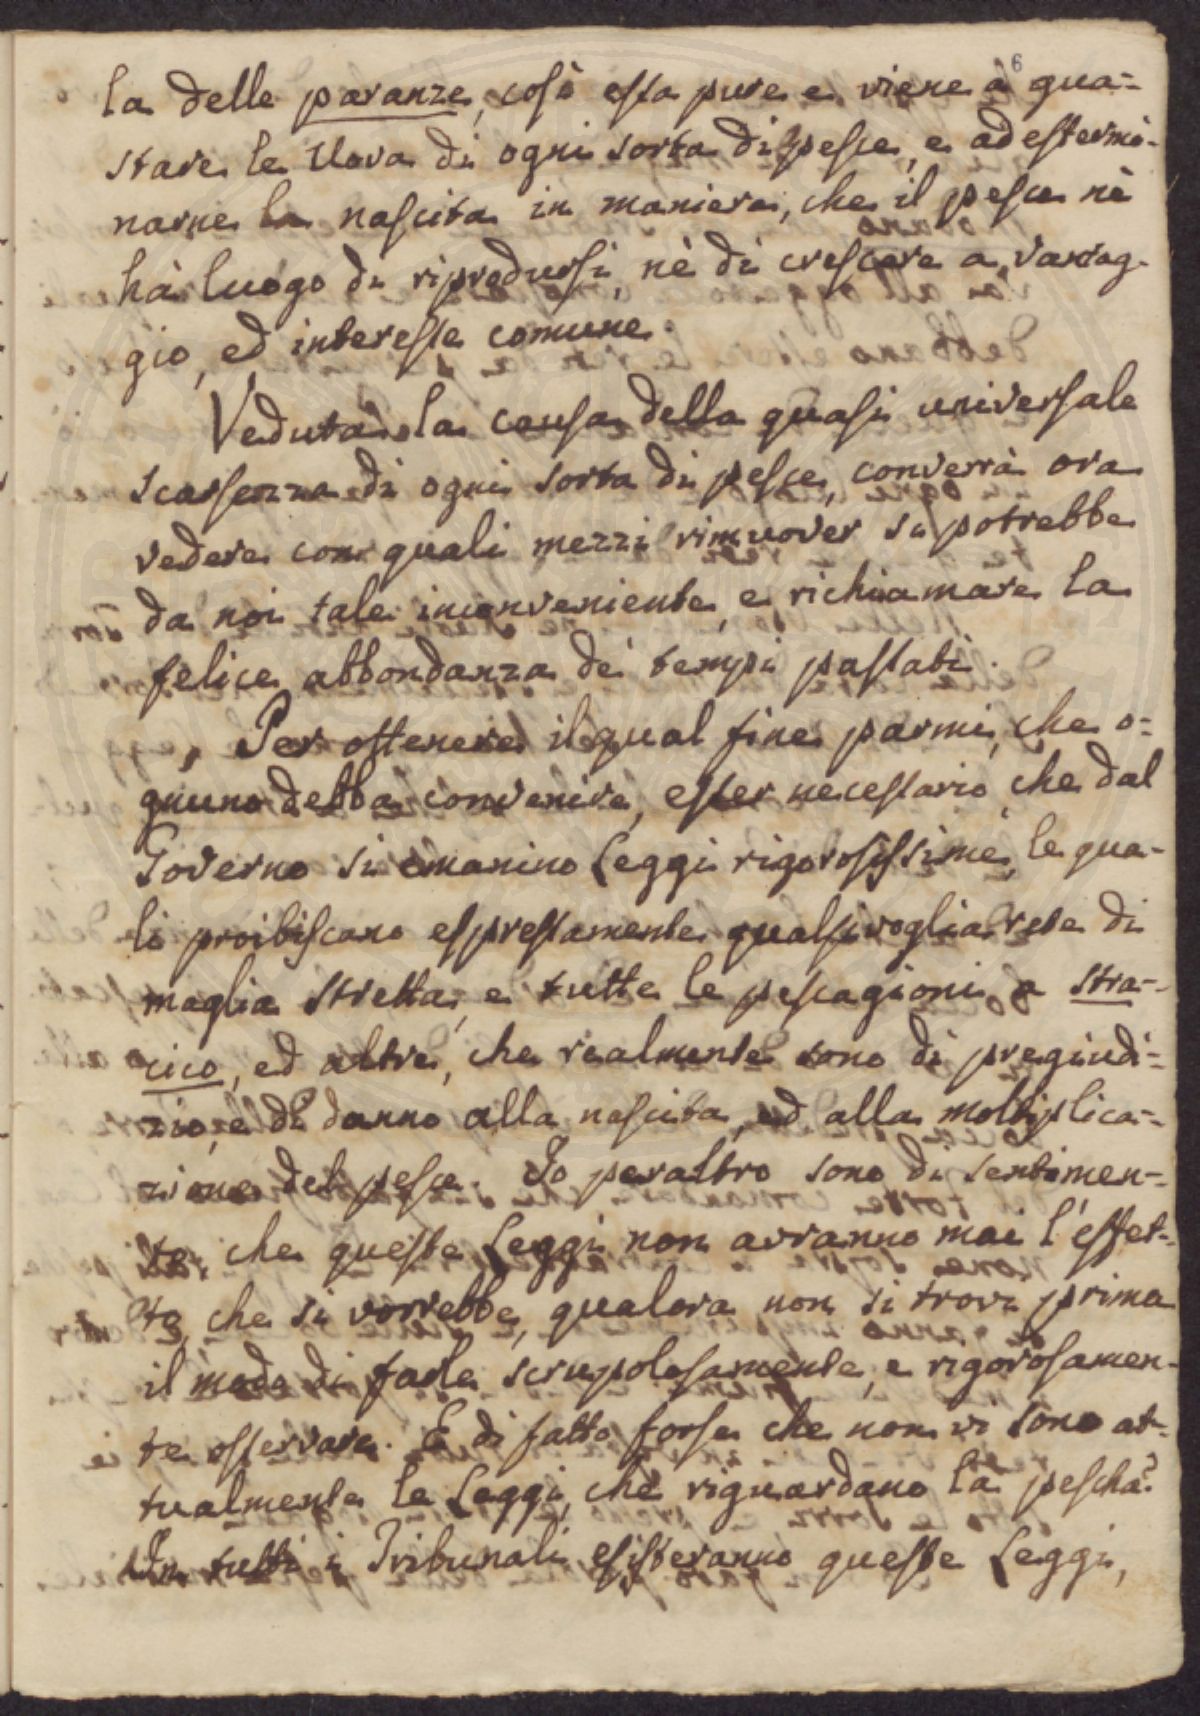 6
la delle paranze, così essa pure e viene à gua=
stare le Uova di ogni sorta di pesce, e ad estermi-
narne la nascita in maniera, che il pesce nè
hà luogo di riprodursi, nè di crescere a vantag-
gio, ed interesse comune.
Veduta la causa della quasi universale
scarsezza di ogni sorta di pesce, converrà ora
vedere con quali mezzi rimuover si potrebbe
da noi tale inconveniente, e richiamare la
felice abbondanza de' tempi passati.
Per ottenere il qual fine parmi, che o=
gnuno debba convenire, esser necessario, che dal
Governo si emanino Leggi rigorosissime, le qua-
li proibiscano espressamente qualsivoglia rete di
maglia stretta, e tutte le pescagioni a stra=
cico, ed altre, che realmente sono di pregiudi=
zio, e di danno alla nascita, ed alla moltiplica=
zione del pesce. Io peraltro sono di sentimen=
to, che queste Leggi non avranno mai l'effet=
to, che si vorrebbe, qualora non si trovi prima
il modo di farle scrupolosamente, e rigorosamen-
te osservare. E di fatto forse che non vi sono at-
tualmente le Leggi, che riguardano la pescha?
In tutti i Tribunali esisteranno queste Leggi,